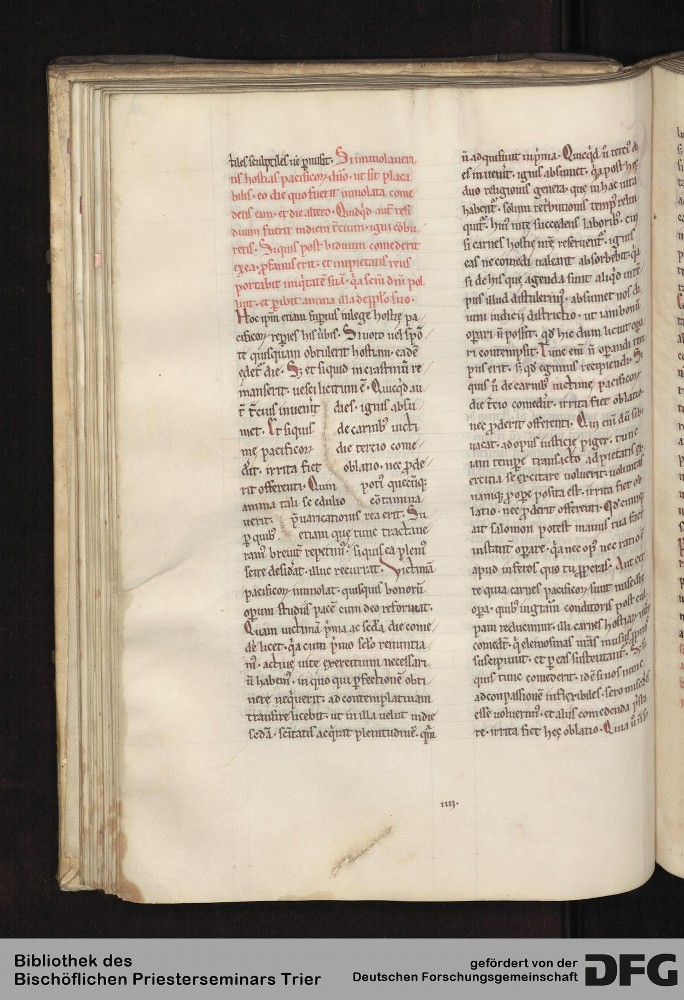 tiles sculptiles ue ꝑmisit. Si immolaueri
tis hostiã pacificoꝝ dño. ut sit placa
bilis. eo die quo fuerit immolata come
detis eam. et die altero. Quidqͥd aut̃ resi
duum fuerit in diem tcium. igni cõbu
retis. Siquis post biduum comederit
ex ea. ꝓfanus erit. et impietatis reus
portabit iniqͥtatẽ suã. qͥa scm̃ dñi pol
luit. et ꝑibit anima illa de pplo suo.
Hoc ipm̃ etiam supius in lege hostie pa
cificoꝝ reperies his ũbis. Si uoto uel spõ
te quisquam obtulerit hostiam. eadẽ
edet᷑ die. Sꝫ et si quid in crastinũ re
manserit. uesci licitum ẽ. Quicqͥd au
t̃ tcius inuenit᷑ dies. ignis absu
met. Et siquis de carnibꝰ uicti
me pacificoꝝ die tercio come
dit. irrita fiet oblatio. nec ꝓde
rit offerenti. Quin potiꝰ quecũqꝫ
anima tali se edulio cõtamina
uerit. p̃uaricationis rea erit. Su
ꝑ quibꝰ etiam que tunc tractaue
ramꝰ breuit̃ repetimꝰ. siquis ea pleniꝰ
scire desidat. illuc recurrat. Victimã
pacificoꝝ immolat. quisquis bonorũ
operum studiis pacẽ cum deo reformat.
Quam uictimã pͥma ac scd̃a die come
dẽ licet. qͥa cum pͥmo sclo renuntia
mꝰ. actiue uite exercitium necessari
ũ habemꝰ. in quo qui ꝑfectionem obti
nere neqͥuerit. ad contemplatiuam
transire licebit. ut in illa uelut in die
scd̃a. scitatis acqͥrat plenitudinẽ. qm̃
ñ adquisiuit in pͥma. Quicqͥd ũ tercius di
es inuenit. ignis absumet. qͥa post hec
duo religionis genera que in hac uita
habent᷑. solum retributionis tempꝰ relin
quit᷑. huiꝰ uite succedens laboribꝰ. cui
si carnes hostie nr̃e reseruent᷑. ignis
eas ne comedi ualeant absorbebit. qͥa
si de his que agenda sunt aliqͥd in tẽ
pus illud distulerimꝰ. absumet nos di
uini iudicii districtio. ut iam bonum
operari ñ possit. qͥ hic dum licuit opa
ri contempsit. Tunc eni ñ operandi tem
pus erit. sꝫ qd̃ egimus recipiendi. Si
quis ũ de carnibꝰ uictime pacificoꝝ
die tcio comedit᷑. irrita fiet oblatio
nec ꝓderit offerenti. Qui eni dũ sibi
uacat. ad opus iusticie piger. tunc
iam tempore transacto ad pietatis ex
ercitia se excitare uoluerit. uoluntas
namqꝫ ꝓ ope posita est. irrita fiet ob
latio. nec ꝓderit offerenti. Qd̃cumqꝫ
ait salomon potest manus tua facere
instant̃ operare. qͥa nec opꝰ nec ratio ẽ
apud inferos quo tu ꝓperas. Aut cer
te quia carnes pacificoꝝ sunt misedie
opera. quibꝰ in gr̃am conditoris post cul
pam reducimur. illi carnes hostiaꝝ
comedit᷑. qͥ elemosinas nr̃as
suscipiunt. et ꝑ eas sustentant᷑. Si
quis tunc comederit. id ẽ si nos nunc
ad conpassionẽ inflexibiles. sero misedes
esse uoluerimꝰ. et aliis comedenda
re. irrita fiet hec oblatio. Quia ũ
IIII.
Bibliothek des
Bischöflichen Priesterseminars Trier
gefördert von der
Deutschen Forschungsgemeinschaft
DFG